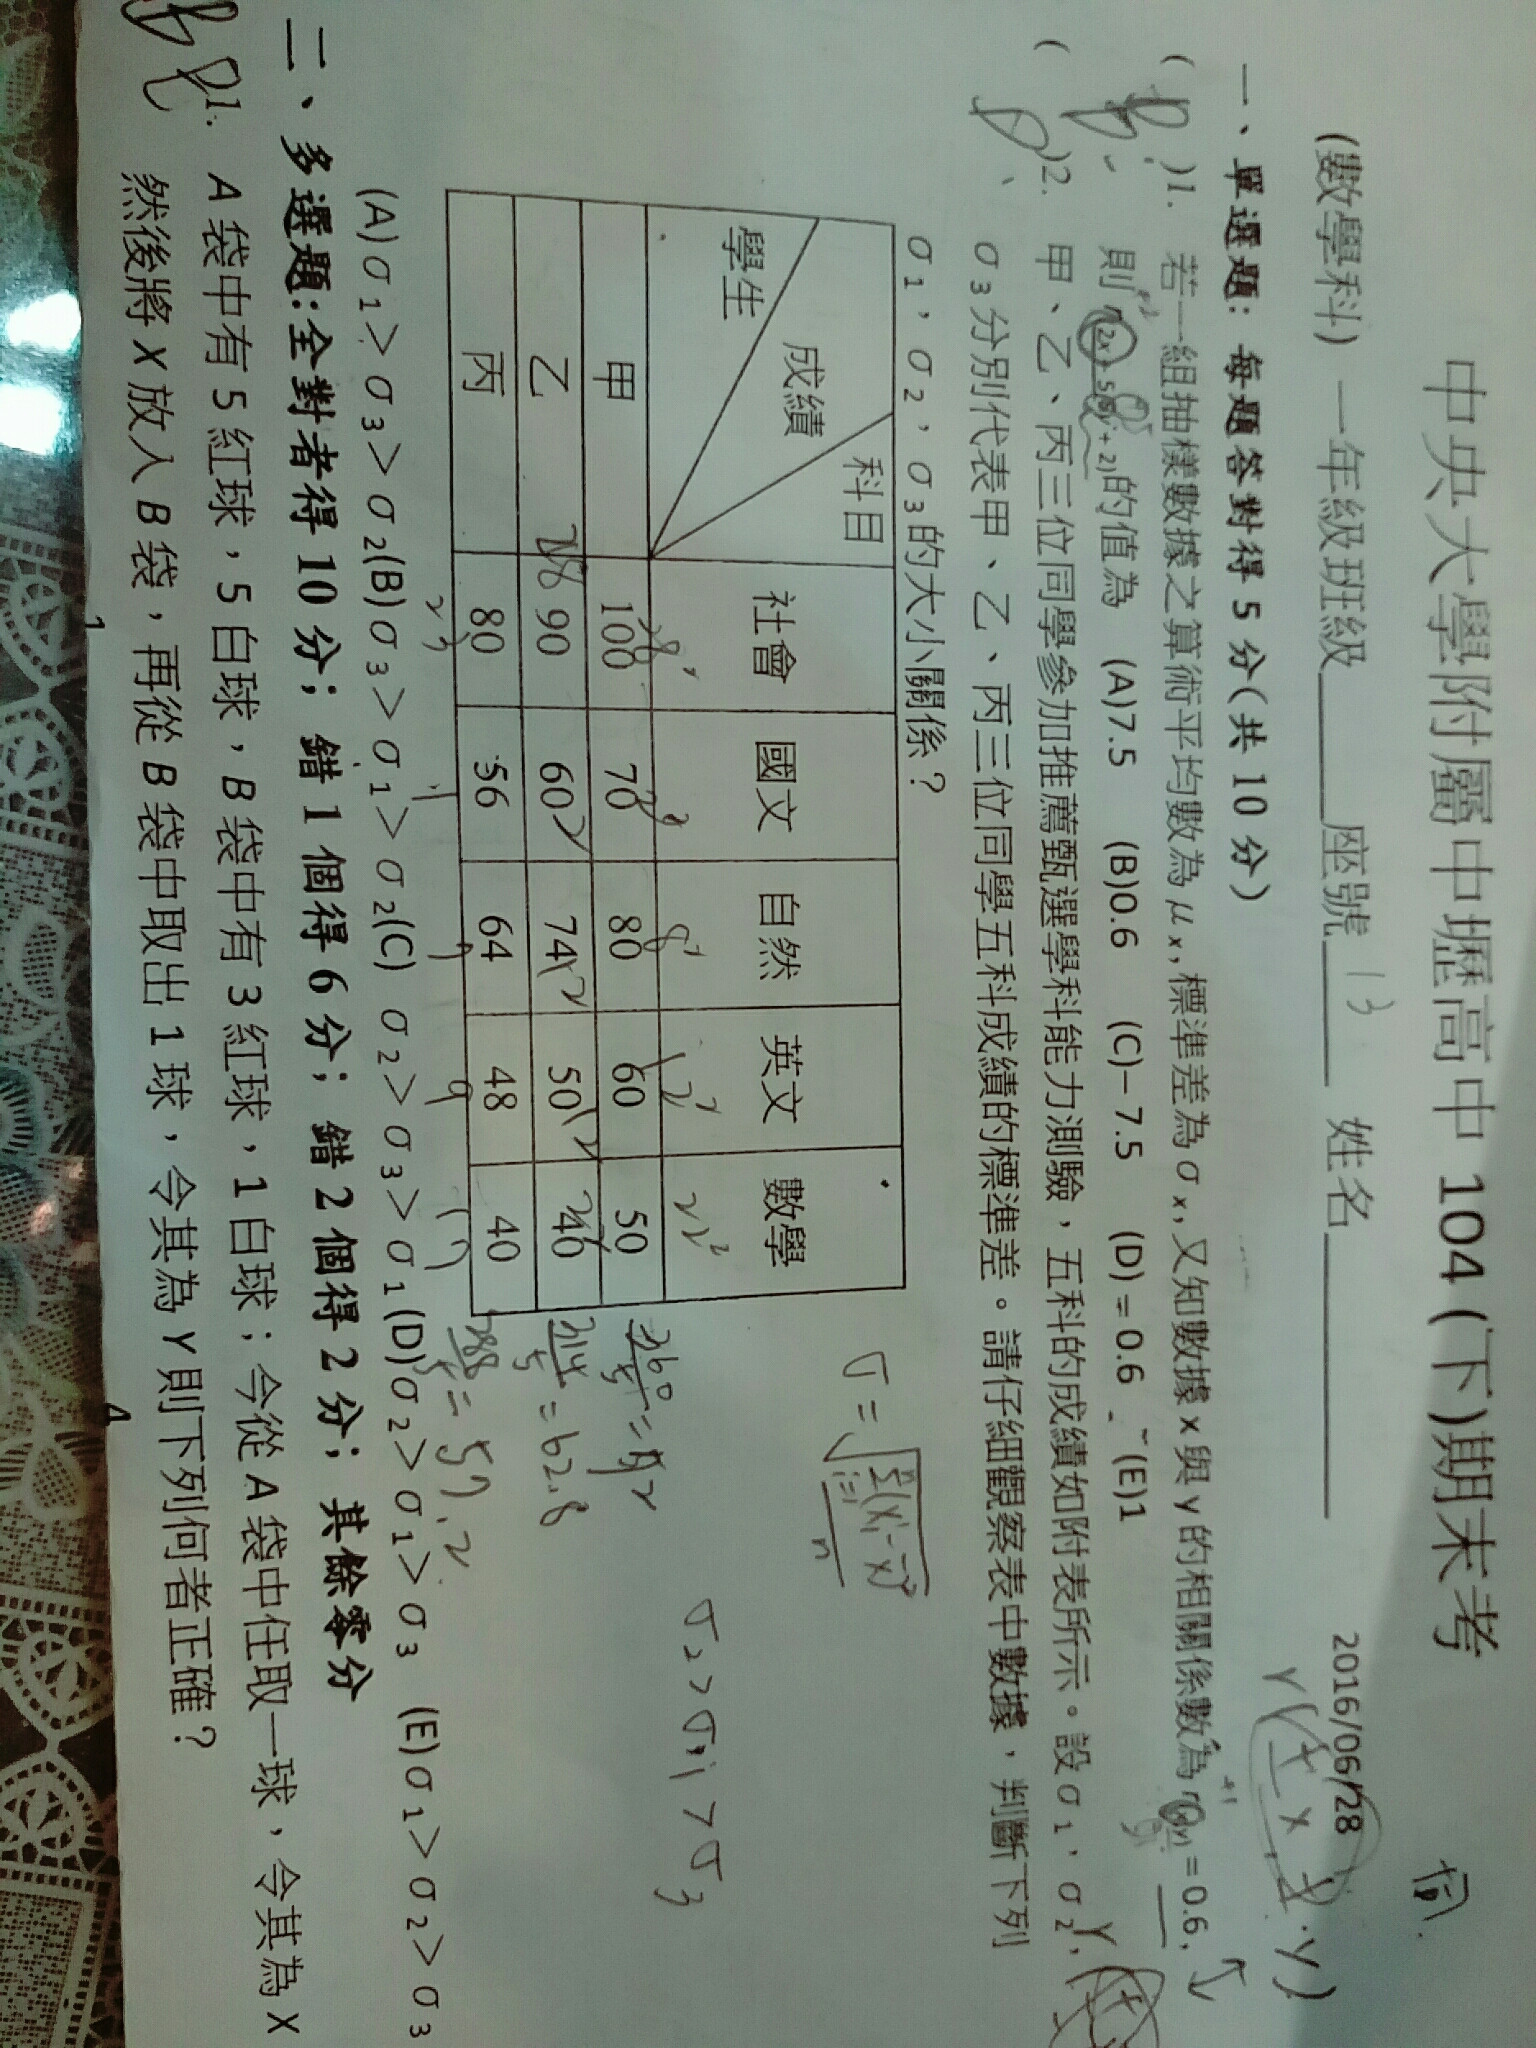 中央大學附屬中壢高中 104 (下)期末考
(數學科) 一年級班級______座號 13 姓名__________ 2016/06/28
一、單選題：每題答對得 5 分(共 10 分)
( B )1. 若一組抽樣數據之算術平均數為 μx，標準差為 σx，又知數據 x 與 y 的相關係數為 r(x,y) = 0.6，
的值為 (A)7.5 (B)0.6 (C)−7.5 (D)−0.6 (E)1
( D )2. 甲、乙、丙三位同學參加推薦甄選學科能力測驗，五科的成績如附表所示。設 σ1、σ2、
σ3 分別代表甲、乙、丙三位同學五科成績的標準差。請仔細觀察表中數據，判斷下列
σ1，σ2，σ3 的大小關係？
σ=
科目
成績
學生
社會 國文 自然 英文 數學
甲 100 70 80 60 50
乙 90 60 74 50 40
丙 80 56 64 48 40
360/5 = 72
314/5 = 62.8
288/5 = 57.2
σ2>σ1>σ3
(A)σ1＞σ3＞σ2(B)σ3＞σ1＞σ2(C) σ2＞σ3＞σ1(D)σ2＞σ1＞σ3 (E)σ1＞σ2＞σ3
二、多選題：全對者得 10 分；錯 1 個得 6 分；錯 2 個得 2 分；其餘零分
1. A 袋中有 5 紅球，5 白球，B 袋中有 3 紅球，1 白球；今從 A 袋中任取一球，令其為 X
然後將 X 放入 B 袋，再從 B 袋中取出 1 球，令其為 Y 則下列何者正確？